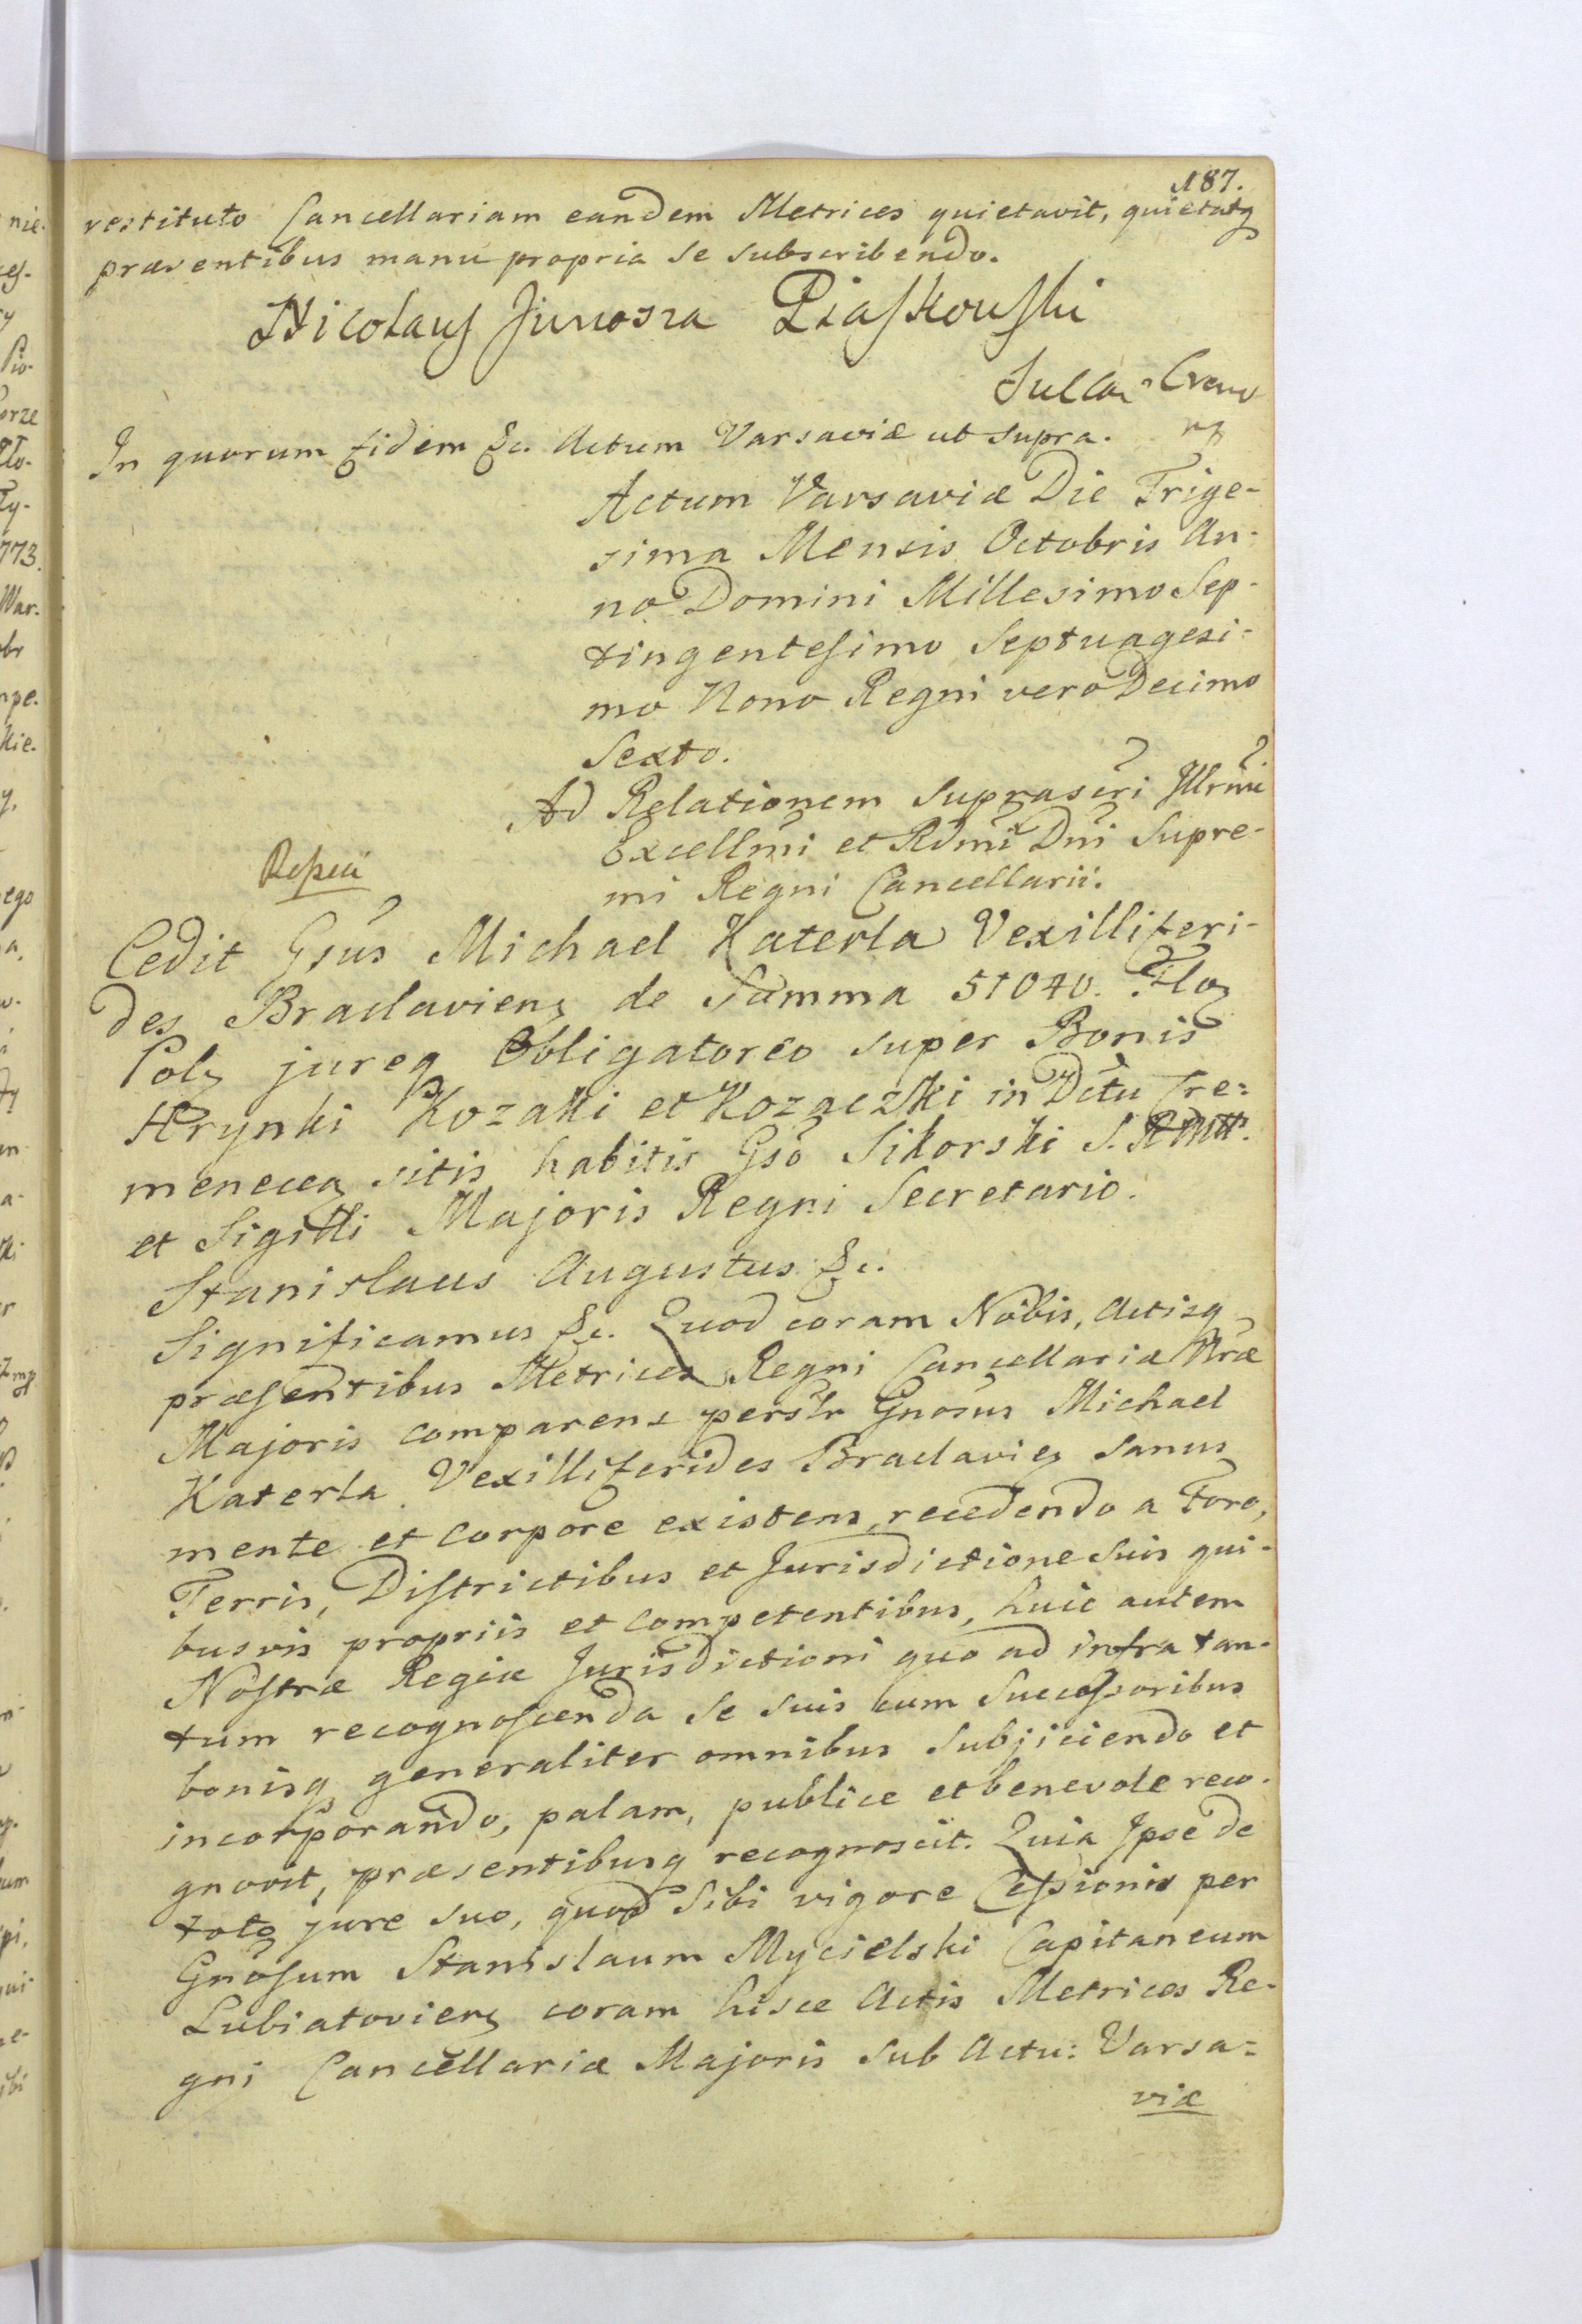 187.
restituto Cancellariam eandem Metrices quietavit, quietatq
præsentibus manu propria se subscribendo.
Nicolaus Junosza Piaskowski
In quorum fidem &c. Actum Varsaviæ ut supra.
Actum Varsaviæ Die Trige-
sima Mensis Octobris An-
no Domini Millesimo Sep-
tingentesimo Septuagesi-
mo Nono Regni vero Decimo
Sexto.
Ad Relationem suprascri Illrmi
Excellmi et Rdmi Dni Supre-
mi Regni Cancellarii.
Cedit Gsus Michael Katerla Vexilliferi-
des Braclaviens de Summa 51040. Flo
Pol jureq Obligatorio super Bonis
Hrynki Kozaki et Kozaczki in Dctu Cre-
menecen sitis habitis Gso Sikorski S. R. Mtt.
et Sigilli Majoris Regni Secretario.
Stanislaus Augustus &c.
Significamus &c. Quod coram Nobis, Actisq
præsentibus Metrices Regni Cancellariæ Nræ
Majoris comparens perslr Gnosus Michael
Katerla Vexilliferides Braclavien sanus
mente et corpore existens, recedendo a Foro,
Terris, Districtibus et Jurisdictione suis qui-
busvis propriis et competentibus, huic autem
Nostræ Regiæ Jurisdictioni quo ad infra tan-
tum recognoscenda se suis cum Successoribus
bonisq generaliter omnibus subjiciendo et
incorporando, palam, publice et benevole reco-
gnovit, præsentibusq recognoscit. Quia Ipse de
toto jure suo, quod Sibi vigore Cessionis per
Gnosum Stanislaum Mycielski Capitaneum
Lubiatoviens coram hisce Actis Metrices Re-
gni Cancellariæ Majoris sub Actu: Varsa-
viæ